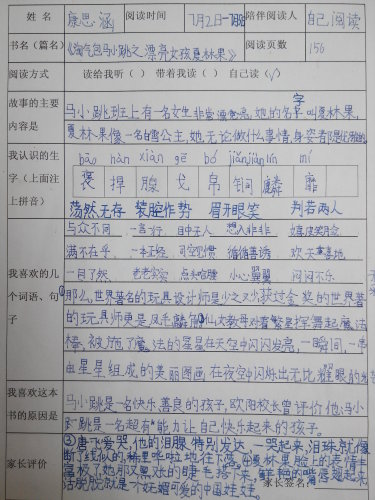 姓 名 康思涵 阅读时间 7月2日-7月8日 陪伴阅读人 自己阅读
书名（篇名） 《淘气包马小跳之漂亮女孩夏林果》 阅读页数 156
阅读方式 读给我听（ ） 带着我读（ ） 自己读（√）
故事的主要内容是
马小跳班上有一名女生非常漂亮,她的名字叫夏林果,
夏林果像一名的雪公主,她无论做什么事情,身姿都是
我认识的生字（上面注上拼音）
bāo hàn xiàn gē bó jiǎn lín mí
褒 捍 腺 戈 帛 锏 麟 靡
我喜欢的几个词语、句子
荡然无存 装腔作势 眉开眼笑 判若两人
与众不同 一言一行 目中无人 想入非非 嬉皮笑脸
满不在乎 一本正经 司空见惯 循循善诱 欢天喜地
一目了然 老老实实 点和哈腰 小心翼翼 闷闷不乐
①那么,世界著名的玩具设计师是少之又少,获过金奖的世界著名
的玩具师更是凤毛麟角②仙女教母对着繁星挥舞起魔法
棒,被施了魔法的星星在天空中闪闪发亮,一瞬间,一串
由星星组成的美丽图画在夜空中闪烁出无比耀眼的光
我喜欢这本书的原因是
马小跳是一名快乐善良的孩子,欧阳校长曾评价他:马小
跳是一名超有"能力让自己快乐起来的孩子。
家长评价
③唐飞爱哭,他的泪腺特别发达,一哭起来,泪珠就像
断了线似的稀里哗啦地往下落。④夏林果脸上的表情丰
富极了,她那又黑又长的睫毛
活脱脱就是一个妩媚可爱的中国娃娃
家长签名: